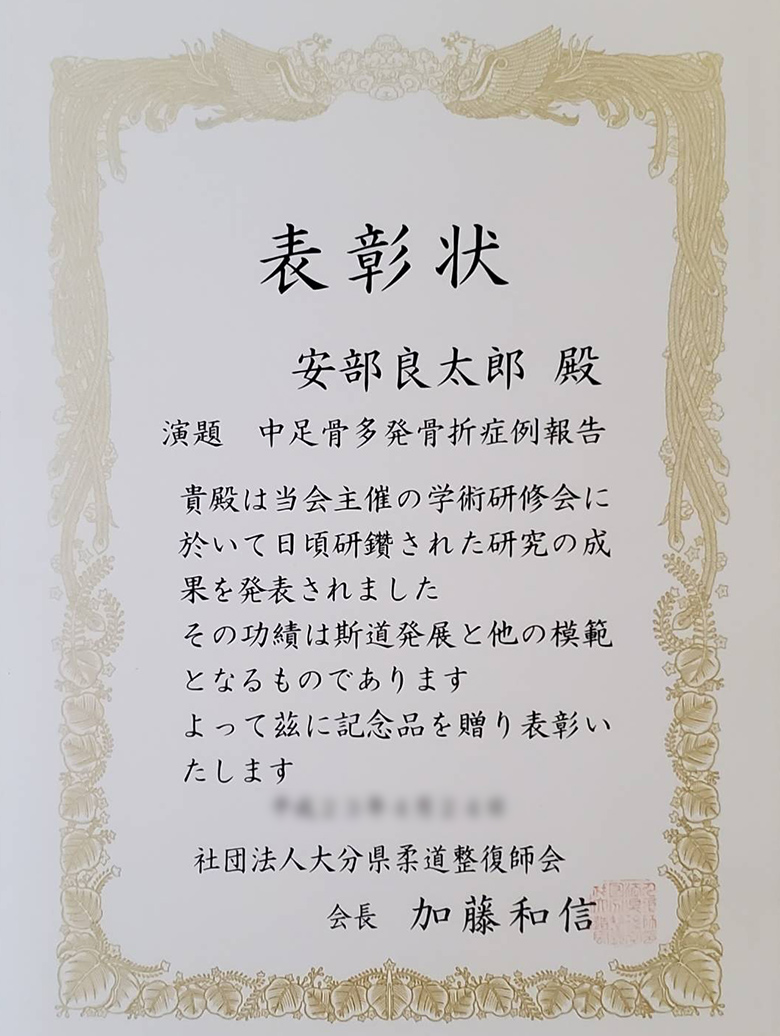 表彰状
安部良太郎 殿
演題 中足骨多発骨折症例報告
貴殿は当会主催の学術研修会に
於いて日頃研鑽された研究の成
果を発表されました
その功績は斯道発展と他の模範
となるものであります
よって茲に記念品を贈り表彰い
たします
社団法人大分県柔道整復師会
会長 加藤和信